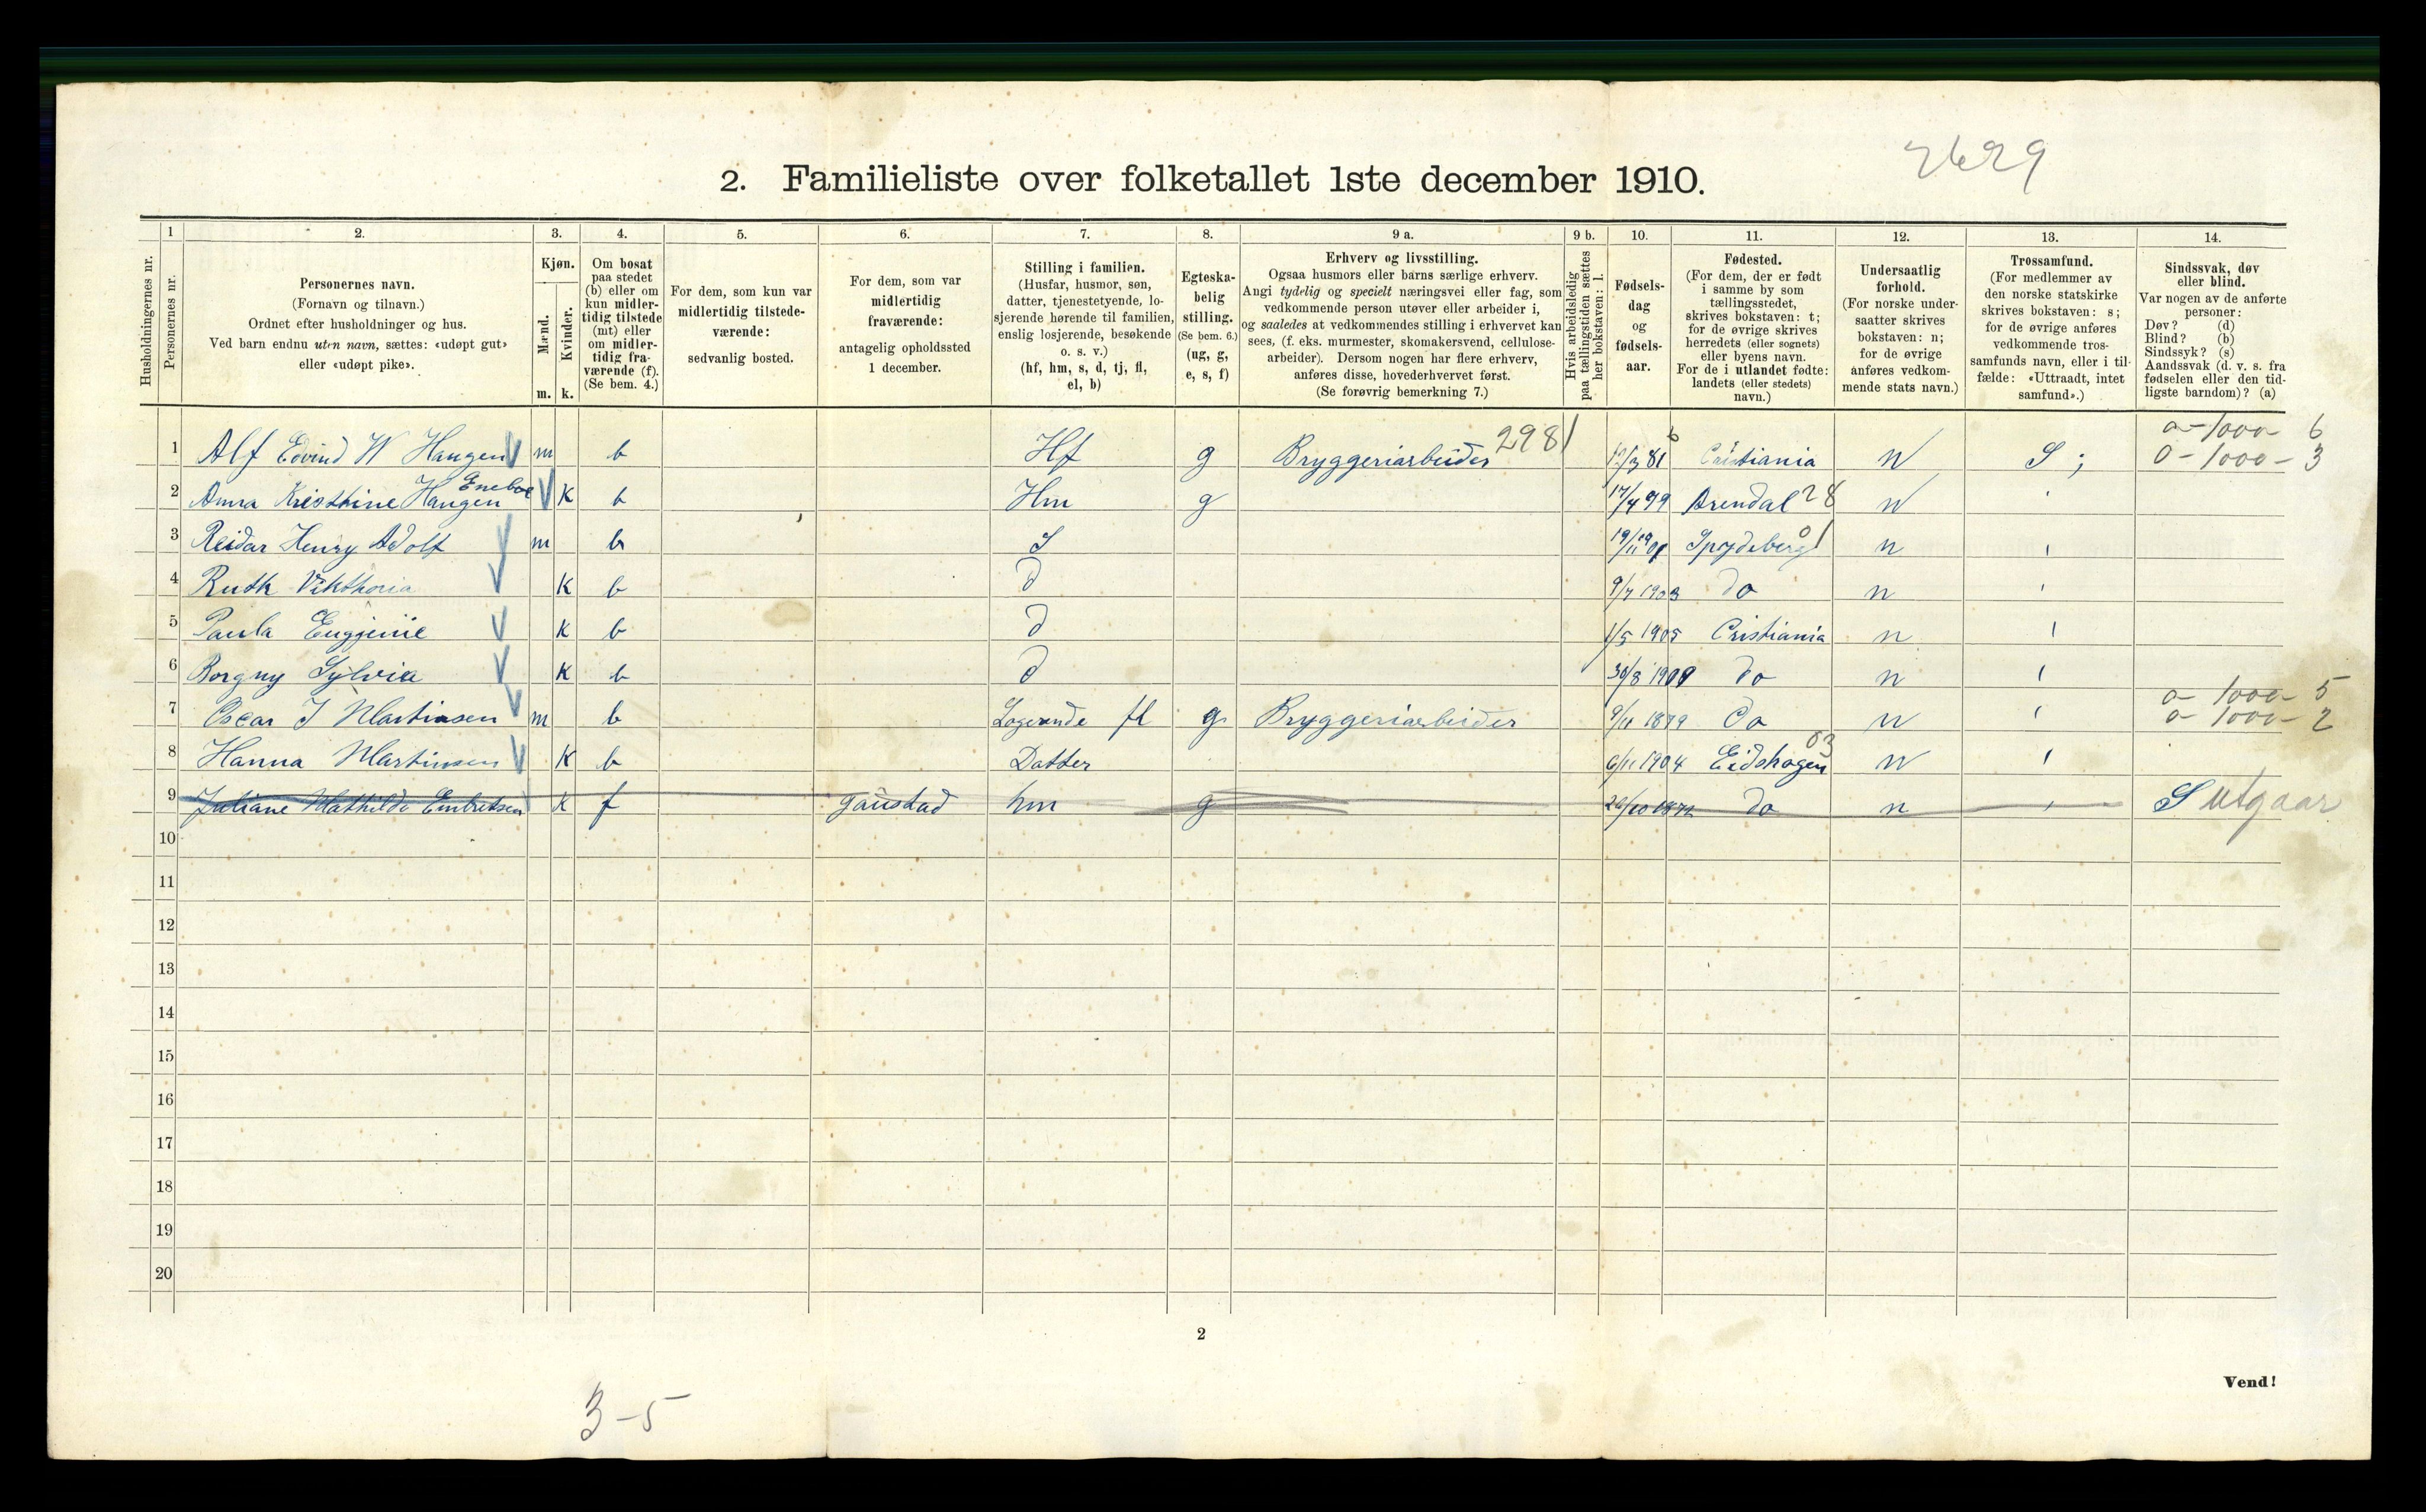 2629
2. Familieliste over folketallet 1ste december 1910.
Husholdningernes nr.
1
Personernes nr.
2.
Personernes navn.
(Fornavn og tilnavn.)
Ordnet efter husholdninger og hus.
Ved barn endnu uten navn, sættes: «udøpt gut»
eller «udøpt pike».
3.
Kjøn.
Mænd.
Kvinder.
m. k.
4.
Om bosat
paa stedet
(b) eller om
kun midler-
tidig tilstede
(mt) eller
om midler-
tidig fra-
værende (f).
(Se bem. 4.)
5.
For dem, som kun var
midlertidig tilstede-
værende:
sedvanlig bosted.
6.
For dem, som var
midlertidig
fraværende:
antagelig opholdssted
1 december.
7.
Stilling i familien.
(Husfar, husmor, søn,
datter, tjenestetyende, lo-
sjerende hørende til familien,
enslig losjerende, besøkende
o. s. v.)
(hf, hm, s, d, tj, fl,
el, b)
8.
Egteska-
belig
stilling.
(Se bem. 6.)
(ug, g,
e, s, f)
9 a.
Erhverv og livsstilling.
Ogsaa husmors eller barns særlige erhverv.
Angi tydelig og specielt næringsvei eller fag, som
vedkommende person utøver eller arbeider i,
og saaledes at vedkommendes stilling i erhvervet kan
sees, (f. eks. murmester, skomakersvend, cellulose-
arbeider). Dersom nogen har flere erhverv,
anføres disse, hovederhvervet først.
(Se forøvrig bemerkning 7.)
9 b.
Hvis arbeidsledig
paa tællingstiden sættes
her bokstaven: l.
10.
Fødsels-
dag
og
fødsels-
aar.
11.
Fødested.
(For dem, der er født
i samme by som
tællingsstedet,
skrives bokstaven: t;
for de øvrige skrives
herredets (eller sognets)
eller byens navn.
For de i utlandet fødte:
landets (eller stedets)
navn.)
12.
Undersaatlig
forhold.
(For norske under-
saatter skrives
bokstaven: n;
for de øvrige
anføres vedkom-
mende stats navn.)
13.
Trossamfund.
(For medlemmer av
den norske statskirke
skrives bokstaven: s;
for de øvrige anføres
vedkommende tros-
samfunds navn, eller i til-
fælde: «Uttraadt, intet
samfund».)
14.
Sindssvak, døv
eller blind.
Var nogen av de anførte
personer:
Døv? (d)
Blind? (b)
Sindssyk? (s)
Aandssvak (d. v. s. fra
fødselen eller den tid-
ligste barndom)? (a)
0 - 1000 - 6
1 Alf Edvind W Haugen m b Hf g Bryggeriarbeider 2981 Cristiania n S ; 0 - 1000 - 3
Eneboe
2 Anna Kristhine Haugen K b Hm g 17/4 Arendal 28 n
3 Reidar Henry Adolf m b S Spydeberg 01 n
4 Ruth Vikthoria K b d 9/7 1903 do n
5 Paula Eugjenie K b d 1/5 1905 Cristiania n
6 Borgny Sylvia K b d 30/8 do n
0 - 1000 - 5
7 Oscar J Martinsen m b Logerende fl g Bryggeriarbeider 9/11 1879 do n 0 - 1000 - 2
8 Hanna Martinsen K b Datter 6/11 1904 Eidshagen 03 n
9 Juliane Mathilde Embretsen K f Gaustad hm g do n S utgaar
10
11
12
13
14
15
16
17
18
19
20
2
Vend!
3-5